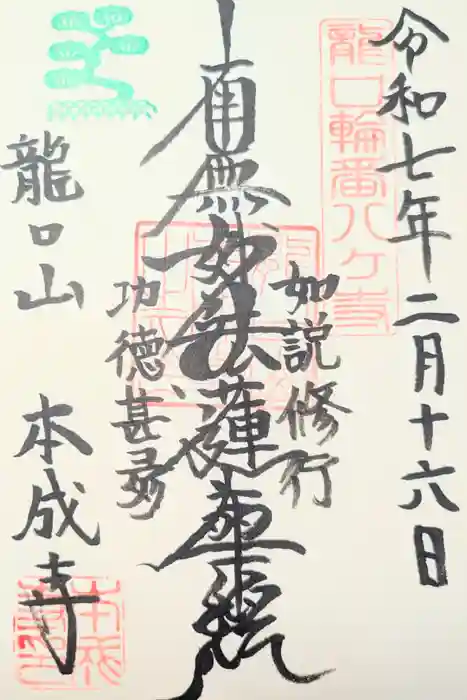 令和七年二月十六日
龍口輪番八ケ寺
如説修行
南無妙法蓮華経
功徳甚多
龍口山 本成寺